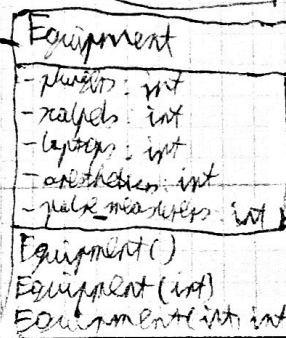 Equipment
- : int
- scalpels : int
- laptops : int
- anesthetics : int
- pulse_measurers : int
Equipment()
Equipment(int)
Equipment(int, int